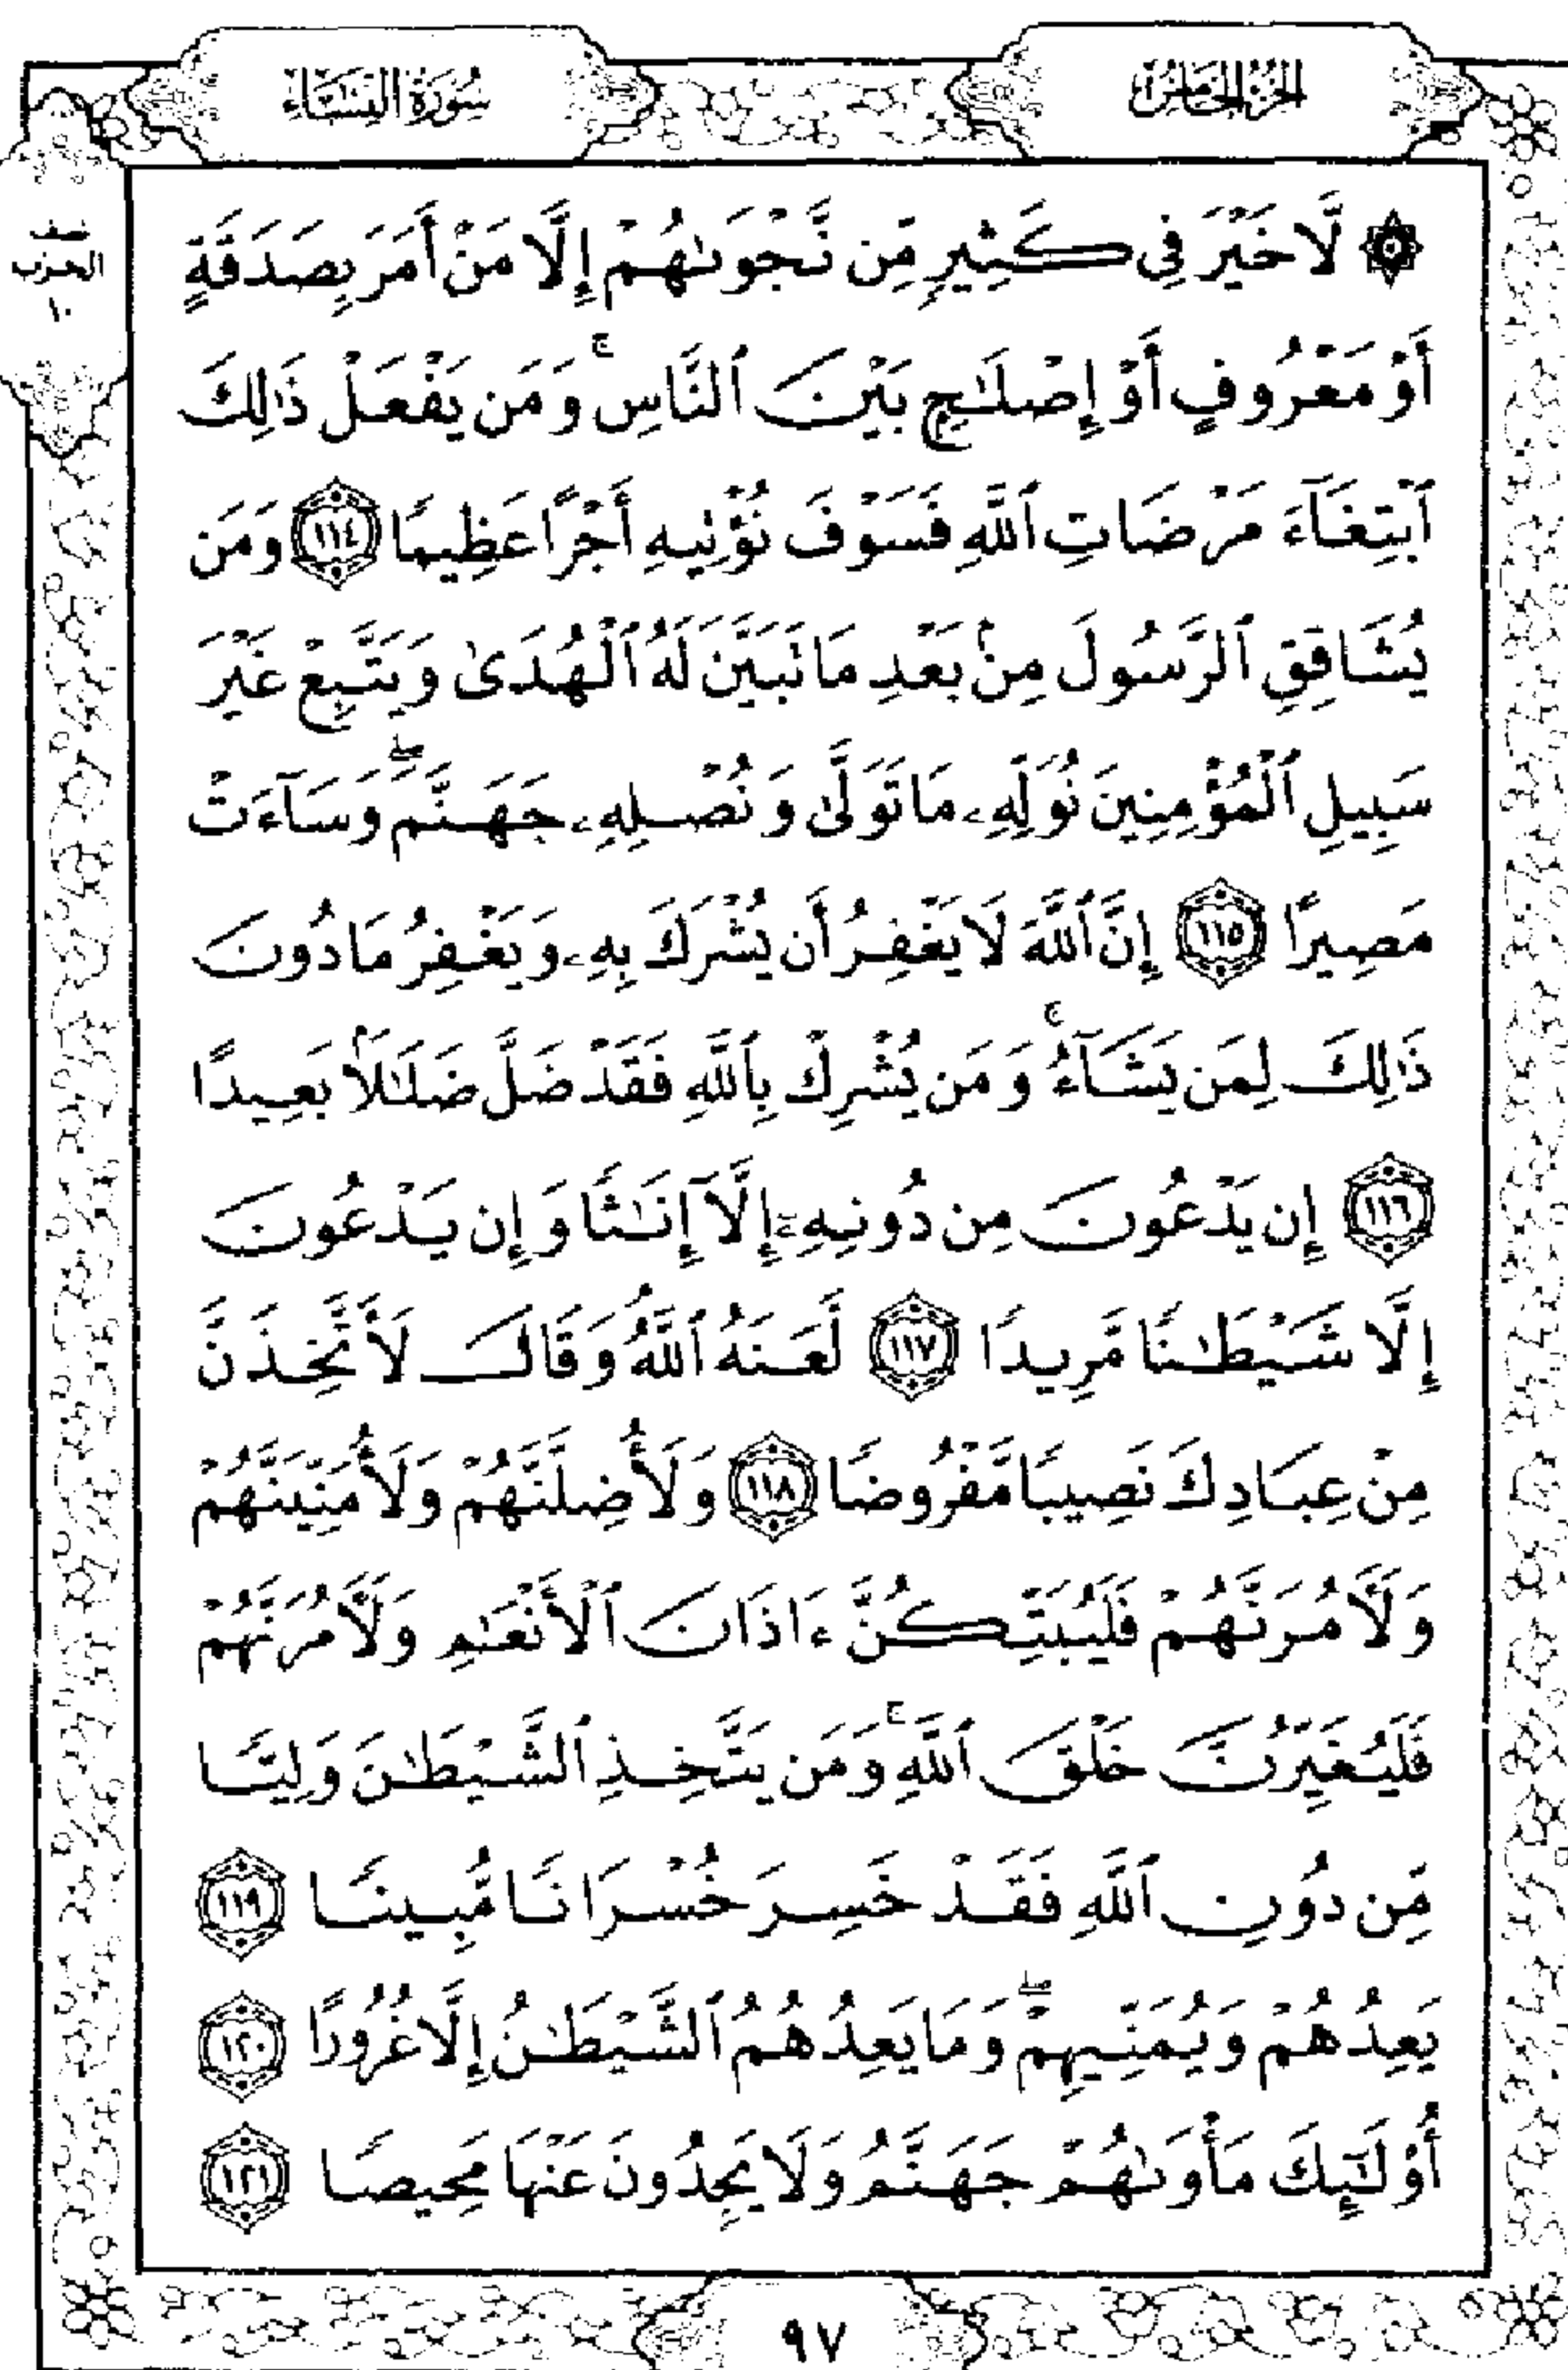 الجزء الخامس
سورة النساء
نصف
الحزب
١٠
۞ لَّا خَيْرَ فِى كَثِيرٍ مِّن نَّجْوَىٰهُمْ إِلَّا مَنْ أَمَرَ بِصَدَقَةٍ
أَوْ مَعْرُوفٍ أَوْ إِصْلَـٰحٍۭ بَيْنَ ٱلنَّاسِ ۚ وَمَن يَفْعَلْ ذَٰلِكَ
ٱبْتِغَآءَ مَرْضَاتِ ٱللَّهِ فَسَوْفَ نُؤْتِيهِ أَجْرًا عَظِيمًا ١١٤ وَمَن
يُشَاقِقِ ٱلرَّسُولَ مِنۢ بَعْدِ مَا تَبَيَّنَ لَهُ ٱلْهُدَىٰ وَيَتَّبِعْ غَيْرَ
سَبِيلِ ٱلْمُؤْمِنِينَ نُوَلِّهِۦ مَا تَوَلَّىٰ وَنُصْلِهِۦ جَهَنَّمَ ۖ وَسَآءَتْ
مَصِيرًا ١١٥ إِنَّ ٱللَّهَ لَا يَغْفِرُ أَن يُشْرَكَ بِهِۦ وَيَغْفِرُ مَا دُونَ
ذَٰلِكَ لِمَن يَشَآءُ ۚ وَمَن يُشْرِكْ بِٱللَّهِ فَقَدْ ضَلَّ ضَلَـٰلًۢا بَعِيدًا
١١٦ إِن يَدْعُونَ مِن دُونِهِۦٓ إِلَّآ إِنَـٰثًا وَإِن يَدْعُونَ
إِلَّا شَيْطَـٰنًا مَّرِيدًا ١١٧ لَّعَنَهُ ٱللَّهُ ۘ وَقَالَ لَأَتَّخِذَنَّ
مِنْ عِبَادِكَ نَصِيبًا مَّفْرُوضًا ١١٨ وَلَأُضِلَّنَّهُمْ وَلَأُمَنِّيَنَّهُمْ
وَلَـَٔامُرَنَّهُمْ فَلَيُبَتِّكُنَّ ءَاذَانَ ٱلْأَنْعَـٰمِ وَلَـَٔامُرَنَّهُمْ
فَلَيُغَيِّرُنَّ خَلْقَ ٱللَّهِ ۚ وَمَن يَتَّخِذِ ٱلشَّيْطَـٰنَ وَلِيًّا
مِّن دُونِ ٱللَّهِ فَقَدْ خَسِرَ خُسْرَانًا مُّبِينًا ١١٩
يَعِدُهُمْ وَيُمَنِّيهِمْ ۖ وَمَا يَعِدُهُمُ ٱلشَّيْطَـٰنُ إِلَّا غُرُورًا ١٢٠
أُو۟لَـٰٓئِكَ مَأْوَىٰهُمْ جَهَنَّمُ وَلَا يَجِدُونَ عَنْهَا مَحِيصًا ١٢١
٩٧